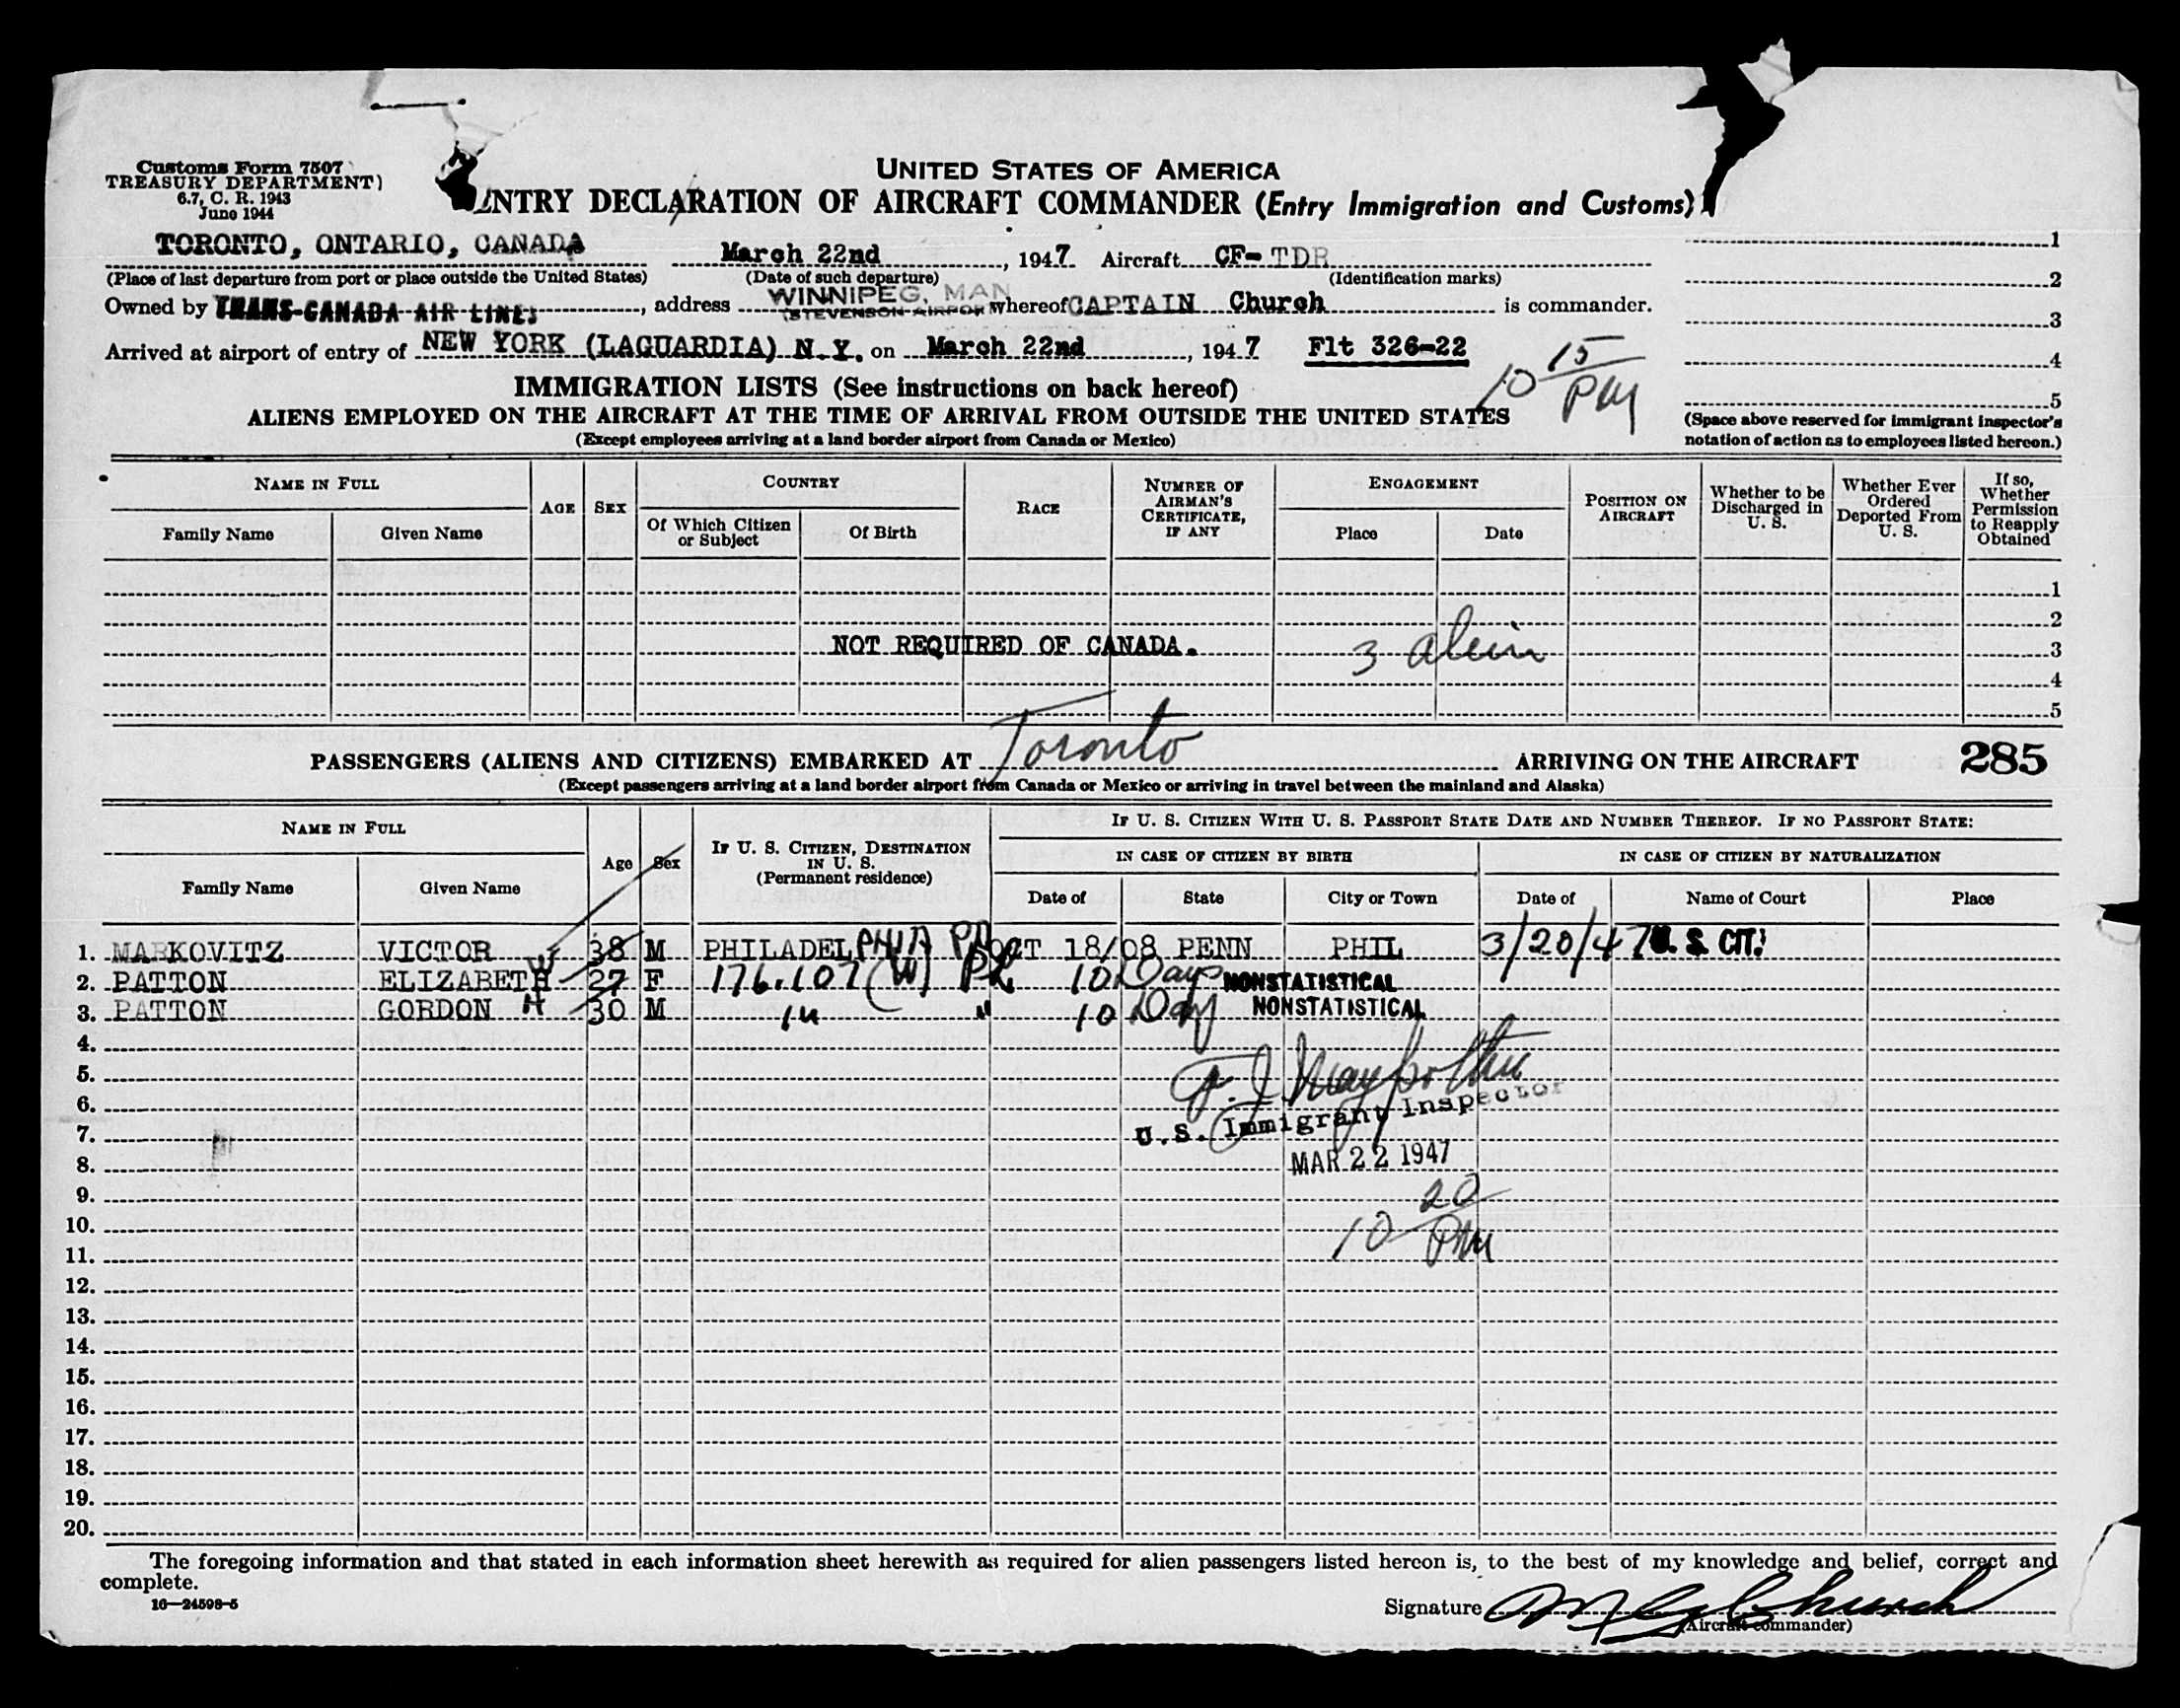 Customs Form 7507
TREASURY DEPARTMENT)
6.7, C. R. 1943
June 1944
UNITED STATES OF AMERICA
ENTRY DECLARATION OF AIRCRAFT COMMANDER (Entry Immigration and Customs)
TORONTO, ONTARIO, CANADA March 22nd, 1947 Aircraft CF-TDR
(Place of last departure from port or place outside the United States) (Date of such departure) (Identification marks)
Owned by TRANS-CANADA AIR LINES, address WINNIPEG, MAN (STEVENSON AIRPOR whereof CAPTAIN Church is commander.
Arrived at airport of entry of NEW YORK (LAGUARDIA) N.Y. on March 22nd, 1947 Flt 326-22
10 15 PM
1
2
3
4
5
(Space above reserved for immigrant inspector's
notation of action as to employees listed hereon.)
IMMIGRATION LISTS (See instructions on back hereof)
ALIENS EMPLOYED ON THE AIRCRAFT AT THE TIME OF ARRIVAL FROM OUTSIDE THE UNITED STATES
(Except employees arriving at a land border airport from Canada or Mexico)
NAME IN FULL
Family Name Given Name
AGE SEX
COUNTRY
Of Which Citizen or Subject Of Birth
RACE
NUMBER OF AIRMAN'S CERTIFICATE, IF ANY
ENGAGEMENT
Place Date
POSITION ON AIRCRAFT
Whether to be Discharged in U. S.
Whether Ever Ordered Deported From U. S.
If so, Whether Permission to Reapply Obtained
1
2
NOT REQUIRED OF CANADA. 3 alein 3
4
5
PASSENGERS (ALIENS AND CITIZENS) EMBARKED AT Toronto ARRIVING ON THE AIRCRAFT 285
(Except passengers arriving at a land border airport from Canada or Mexico or arriving in travel between the mainland and Alaska)
NAME IN FULL
Family Name Given Name
Age Sex
IF U. S. CITIZEN, DESTINATION IN U. S.
(Permanent residence)
IF U. S. CITIZEN WITH U. S. PASSPORT STATE DATE AND NUMBER THEREOF. IF NO PASSPORT STATE:
IN CASE OF CITIZEN BY BIRTH IN CASE OF CITIZEN BY NATURALIZATION
Date of State City or Town Date of Name of Court Place
1. MARKOVITZ VICTOR 38 M PHILADELPHIA PA OCT 18/08 PENN PHIL 3/20/47 U. S. CIT.
2. PATTON ELIZABETH W 27 F 176.107 (W) 10 Days NONSTATISTICAL
3. PATTON GORDON H 30 M " " 10 Day NONSTATISTICAL
4.
5.
6.
U.S. Immigrant Inspector
7.
8. MAR 22 1947
9.
10. 10 20 PM
11.
12.
13.
14.
15.
16.
17.
18.
19.
20.
The foregoing information and that stated in each information sheet herewith as required for alien passengers listed hereon is, to the best of my knowledge and belief, correct and
complete.
16—24598-5
Signature Church
(Aircraft commander)